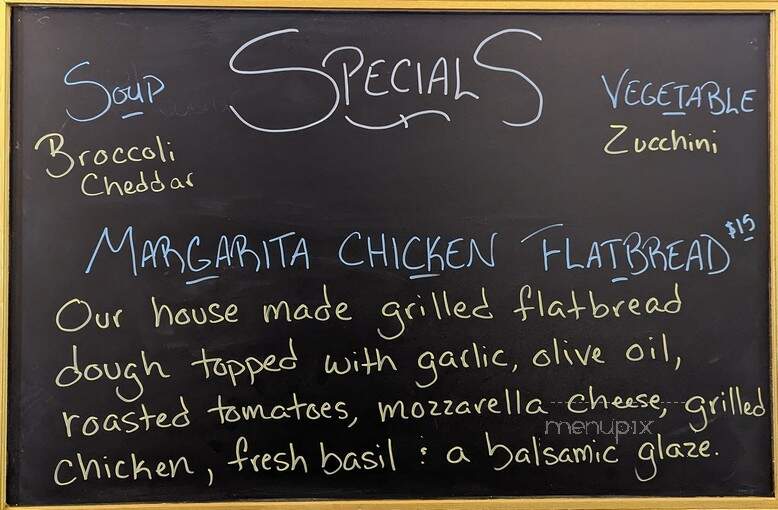 SPECIALS
SOUP
Broccoli
Cheddar
VEGETABLE
Zucchini
MARGARITA CHICKEN FLATBREAD $15
Our house made grilled flatbread
dough topped with garlic, olive oil,
roasted tomatoes, mozzarella cheese, grilled
chicken, fresh basil & a balsamic glaze.
menupix